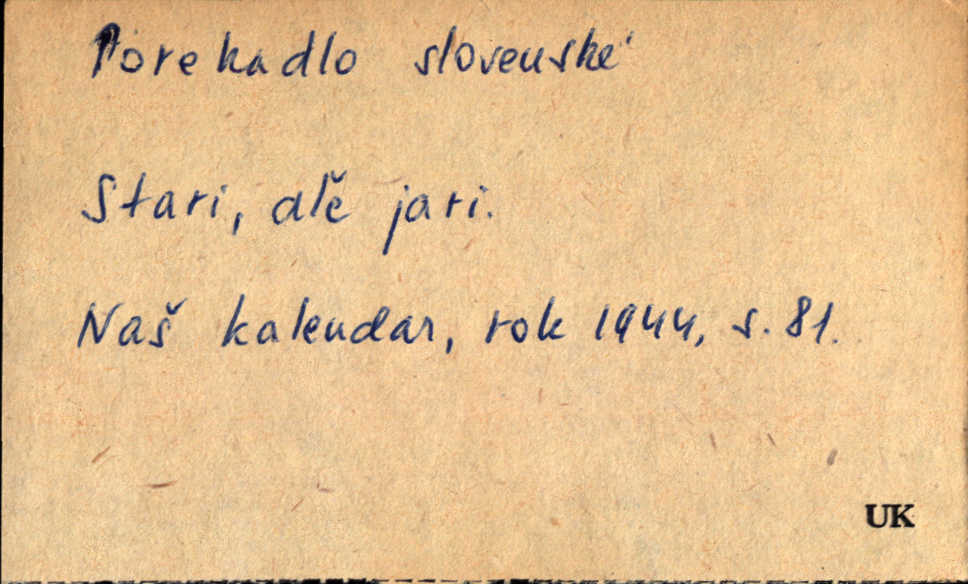 Porekadlo slovenské
Stari, alě jari.
Naš kalendar, rok 1944, s. 81.
UK